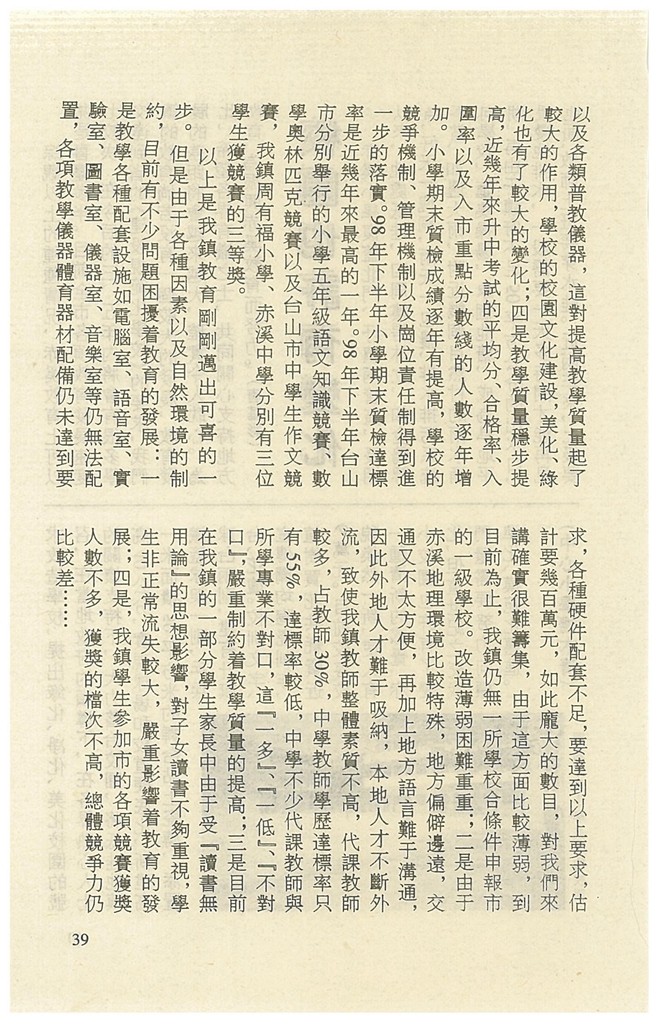 以及各類普教儀器，這對提高教學質量起了
較大的作用，學校的校園文化建設，美化、綠
化也有了較大的變化；四是教學質量穩步提
高，近幾年來升中考試的平均分、合格率、入
圍率以及入市重點分數綫的人數逐年增
加。小學期末質檢成績逐年有提高，學校的
競爭機制、管理機制以及崗位責任制得到進
一步的落實。98年下半年小學期末質檢達標
率是近幾年來最高的一年。98年下半年台山
市分別舉行的小學五年級語文知識競賽、數
學奧林匹克競賽以及台山市中學生作文競
賽，我鎮周有福小學、赤溪中學分別有三位
學生獲競賽的三等獎。
以上是我鎮教育剛剛邁出可喜的一
步。但是由于各種因素以及自然環境的制
約，目前有不少問題困擾着教育的發展：一
是教學各種配套設施如電腦室、語音室、實
驗室、圖書室、儀器室、音樂室等仍無法配
置，各項教學儀器體育器材配備仍未達到要
求，各種硬件配套不足，要達到以上要求，估
計要幾百萬元，如此龐大的數目，對我們來
講確實很難籌集，由于這方面比較薄弱，到
目前為止，我鎮仍無一所學校合條件申報市
的一級學校。改造薄弱困難重重；二是由于
赤溪地理環境比較特殊，地方偏僻邊遠，交
通又不太方便，再加上地方語言難于溝通，
因此外地人才難于吸納，本地人才不斷外
流，致使我鎮教師整體素質不高，代課教師
較多，占教師30%，中學教師學歷達標率只
有55%，達標率較低，中學不少代課教師與
所學專業不對口，這『一多』、『一低』、『不對
口』，嚴重制約着教學質量的提高；三是目前
在我鎮的一部分學生家長中由于受『讀書無
用論』的思想影響，對子女讀書不夠重視，學
生非正常流失較大，嚴重影響着教育的發
展；四是，我鎮學生參加市的各項競賽獲獎
人數不多，獲獎的檔次不高，總體競爭力仍
比較差……
39